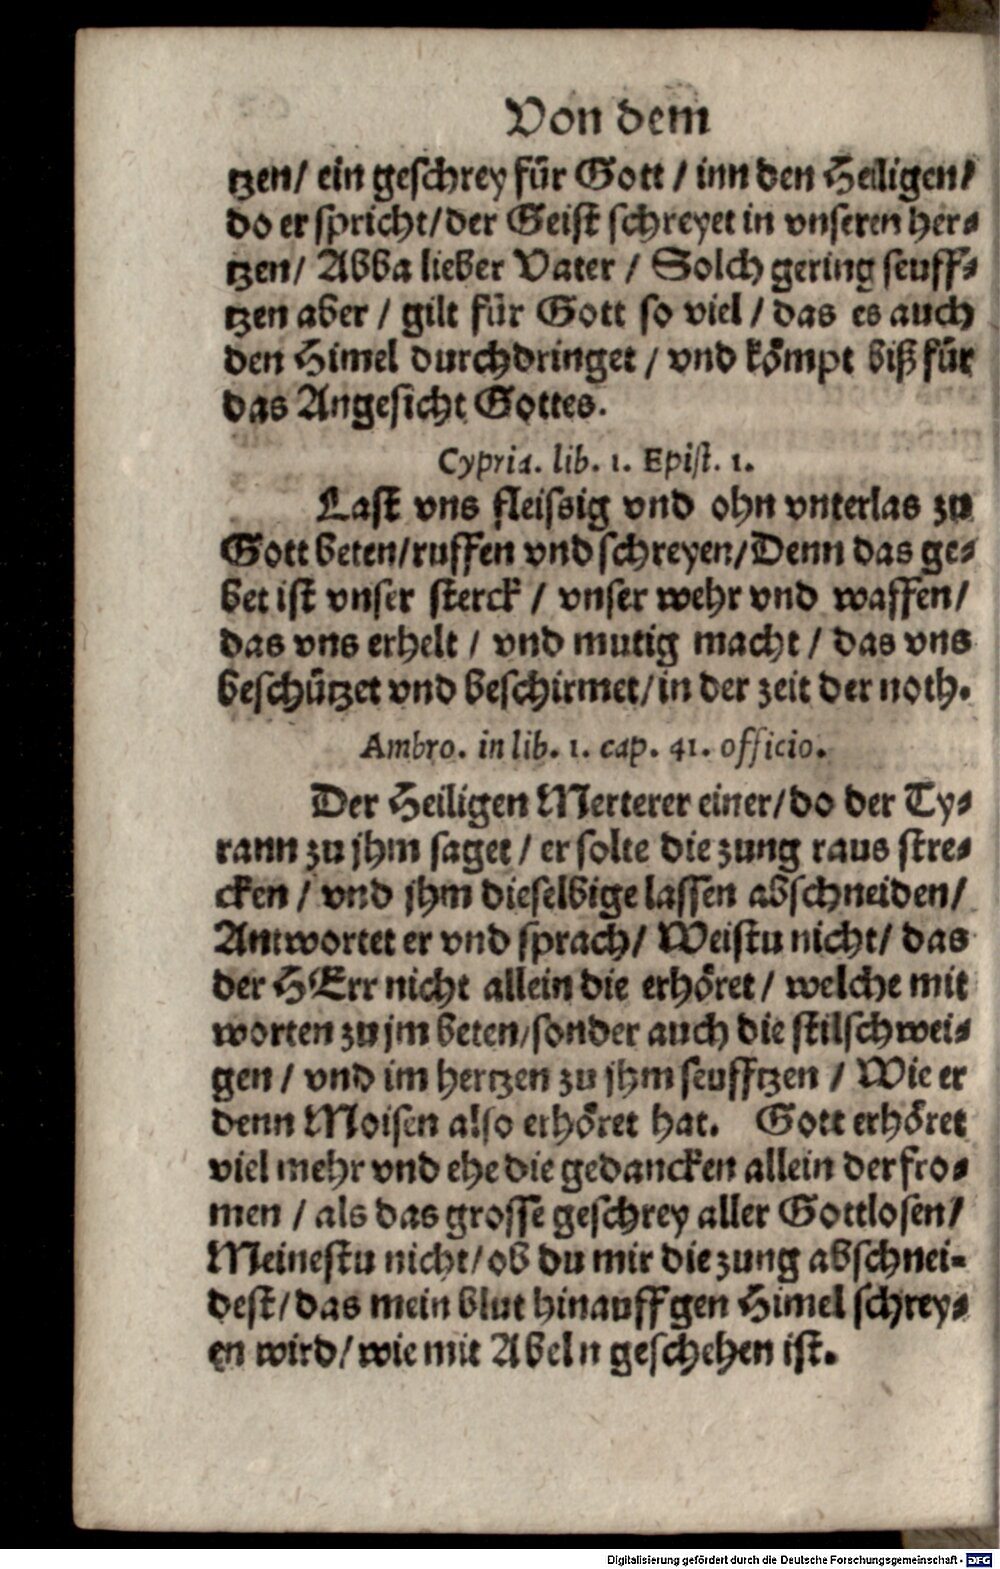 Von dem
tzen/ ein geschrey für Gott / inn den Heiligen/
do er spricht/der Geist schreyet in vnseren her⸗
tzen/ Abba lieber Vater / Solch gering seuff⸗
tzen aber / gilt für Gott so viel / das es auch
den Himel durchdringet / vnd kömpt biß für
das Angesicht Gottes.
Cypria. lib. 1. Epist. 1.
Last vns fleissig vnd ohn vnterlas zu
Gott beten/ruffen vnd schreyen/Denn das ge⸗
bet ist vnser sterck / vnser wehr vnd waffen/
das vns erhelt / vnd mutig macht / das vns
beschützet vnd beschirmet/in der zeit der noth.
Ambro. in lib. 1. cap. 41. officio.
Der Heiligen Merterer einer/do der Ty⸗
rann zu jhm saget / er solte die zung raus stre⸗
cken / vnd jhm dieselbige lassen abschneiden/
Antwortet er vnd sprach/ Weistu nicht/ das
der HErr nicht allein die erhöret / welche mit
worten zu jm beten/sonder auch die stilschwei⸗
gen / vnd im hertzen zu jhm seufftzen / Wie er
denn Moisen also erhöret hat. Gott erhöret
viel mehr vnd ehe die gedancken allein der fro⸗
men / als das grosse geschrey aller Gottlosen/
Meinestu nicht/ob du mir die zung abschnei⸗
dest/das mein blut hinauff gen Himel schrey⸗
en wird/wie mit Abeln geschehen ist.
Digitalisierung gefördert durch die Deutsche Forschungsgemeinschaft - DFG